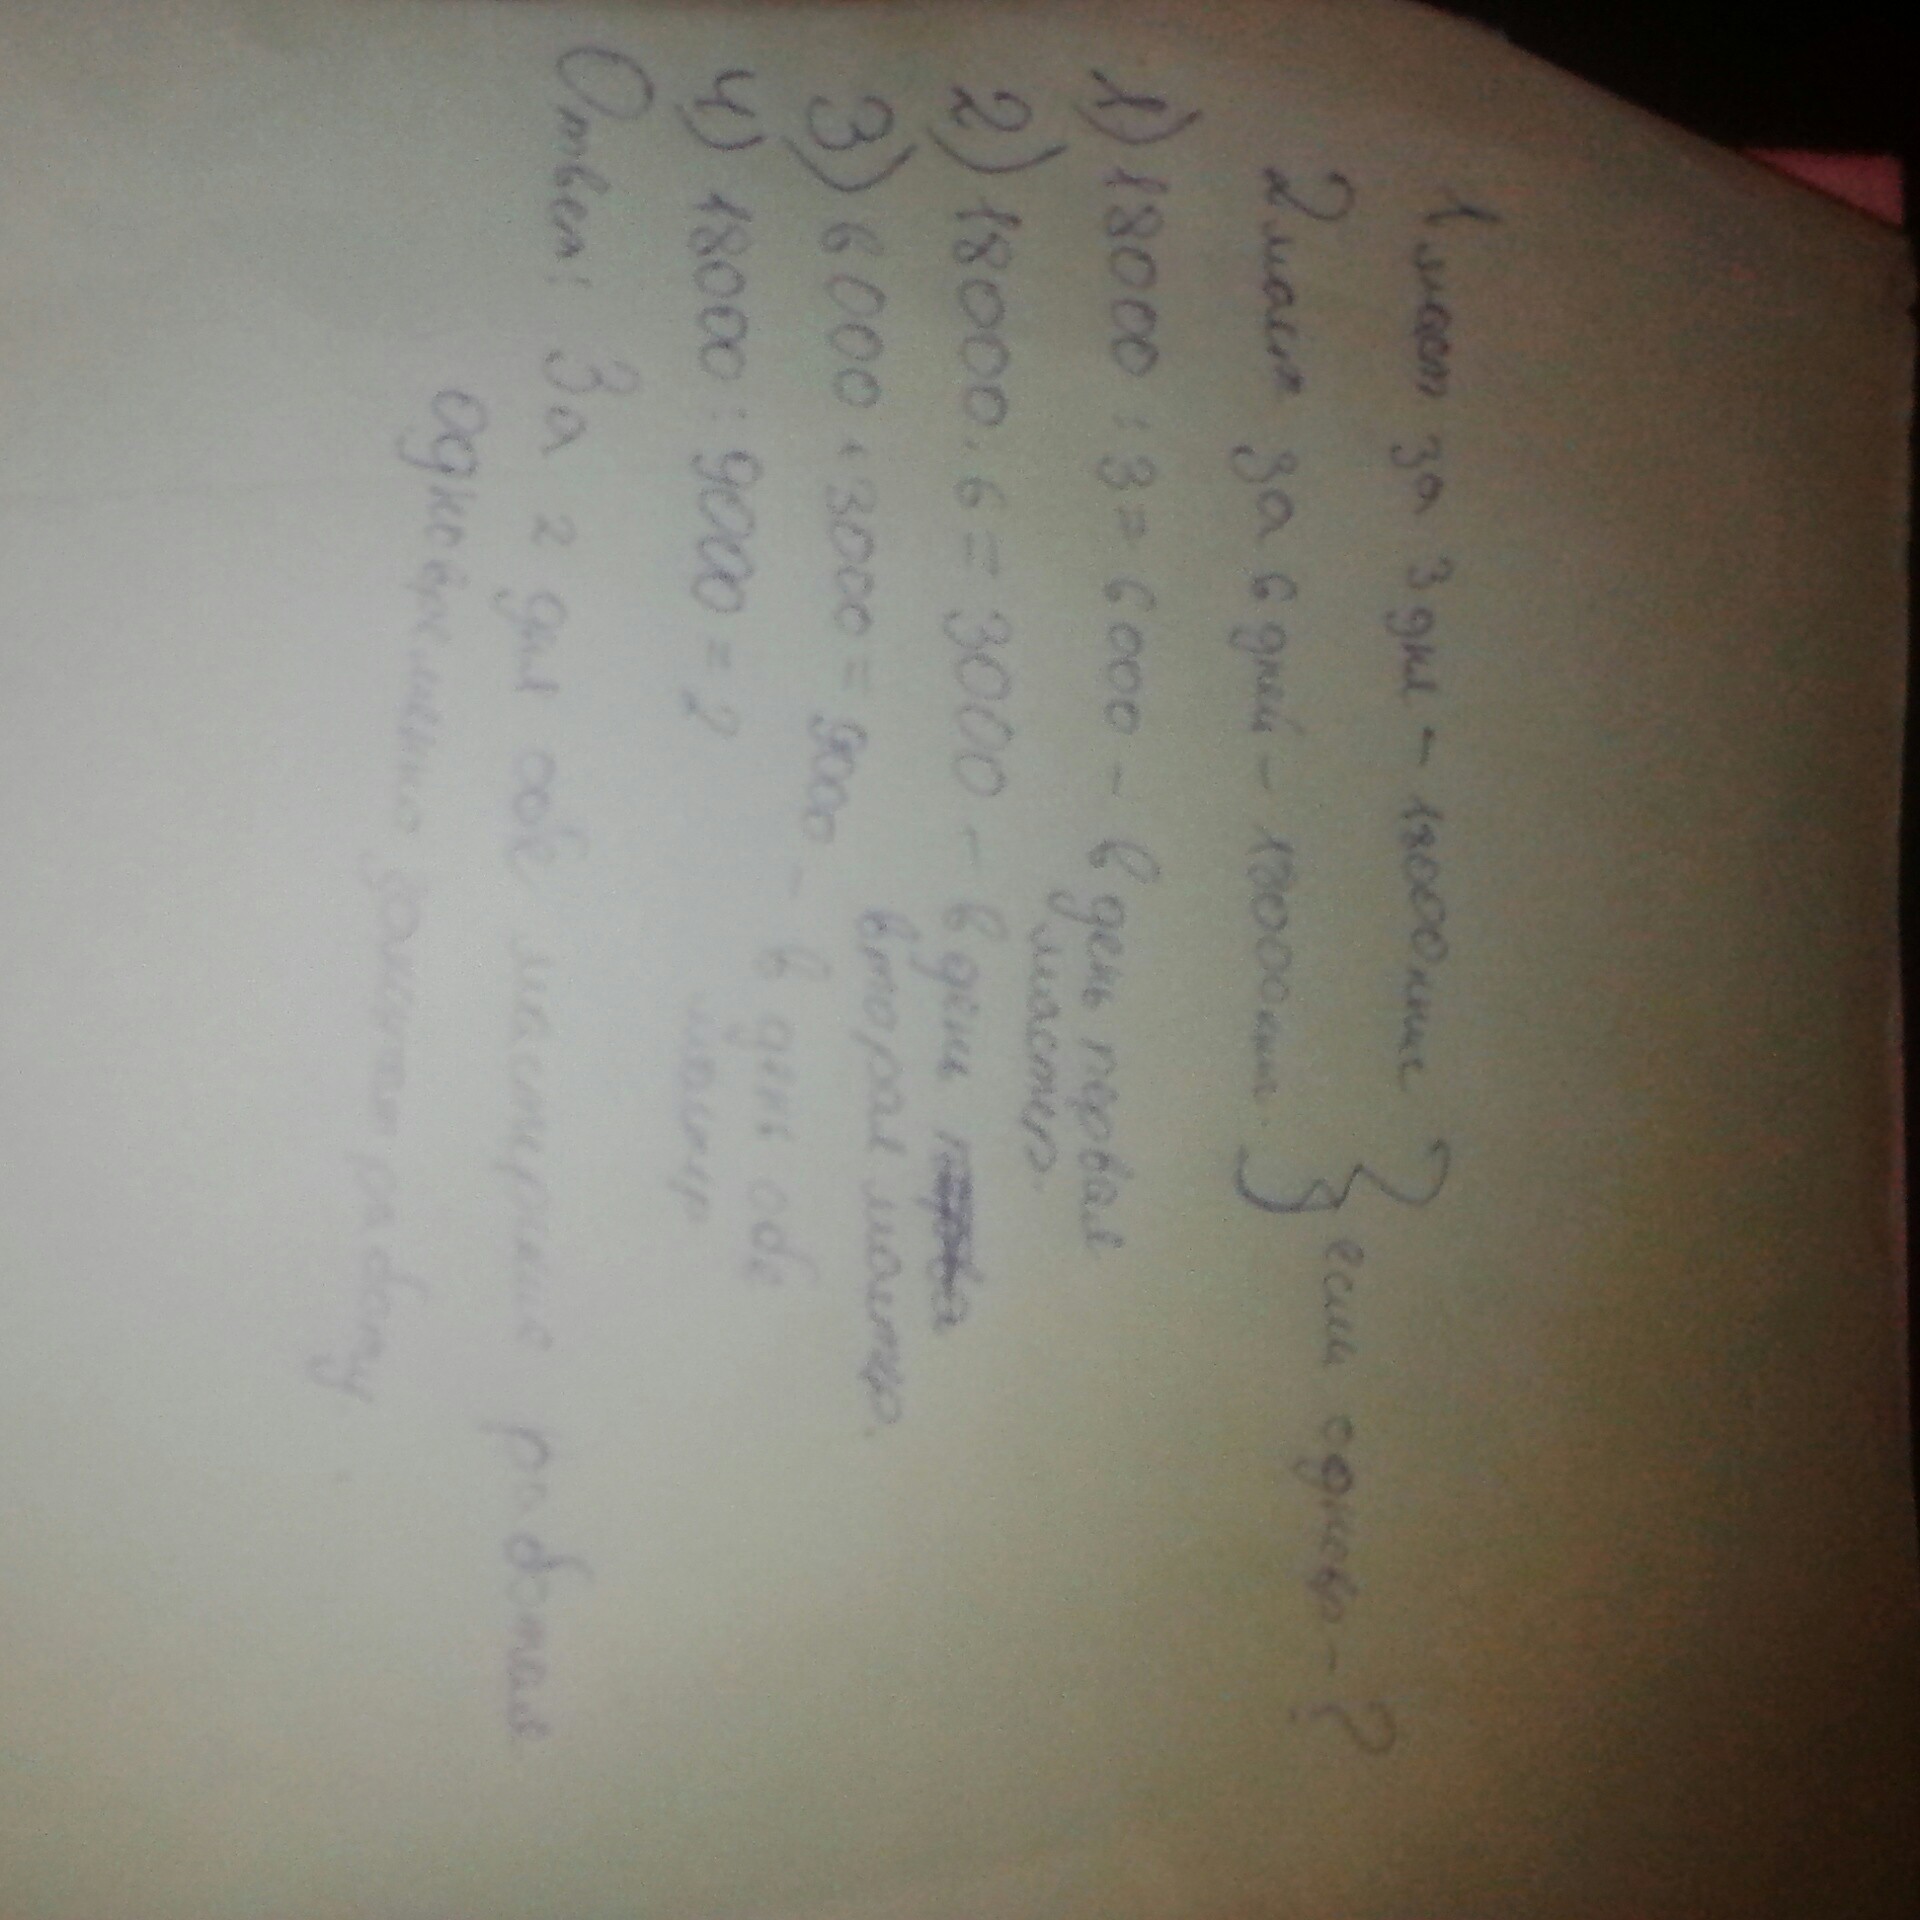 1 маст за 3 дня - 18000 мин
2 маст за 6 дней - 18000 мин.
} если однов - ?
1) 18000 : 3 = 6000 - в день первая
мастер.
2) 18000 : 6 = 3000 - в день
вторая мастер.
3) 6000 + 3000 = 9000 - в день обе
мастер
4) 18000 : 9000 = 2
Ответ: За 2 дня обе мастерские работая
одновременно закончат работу.